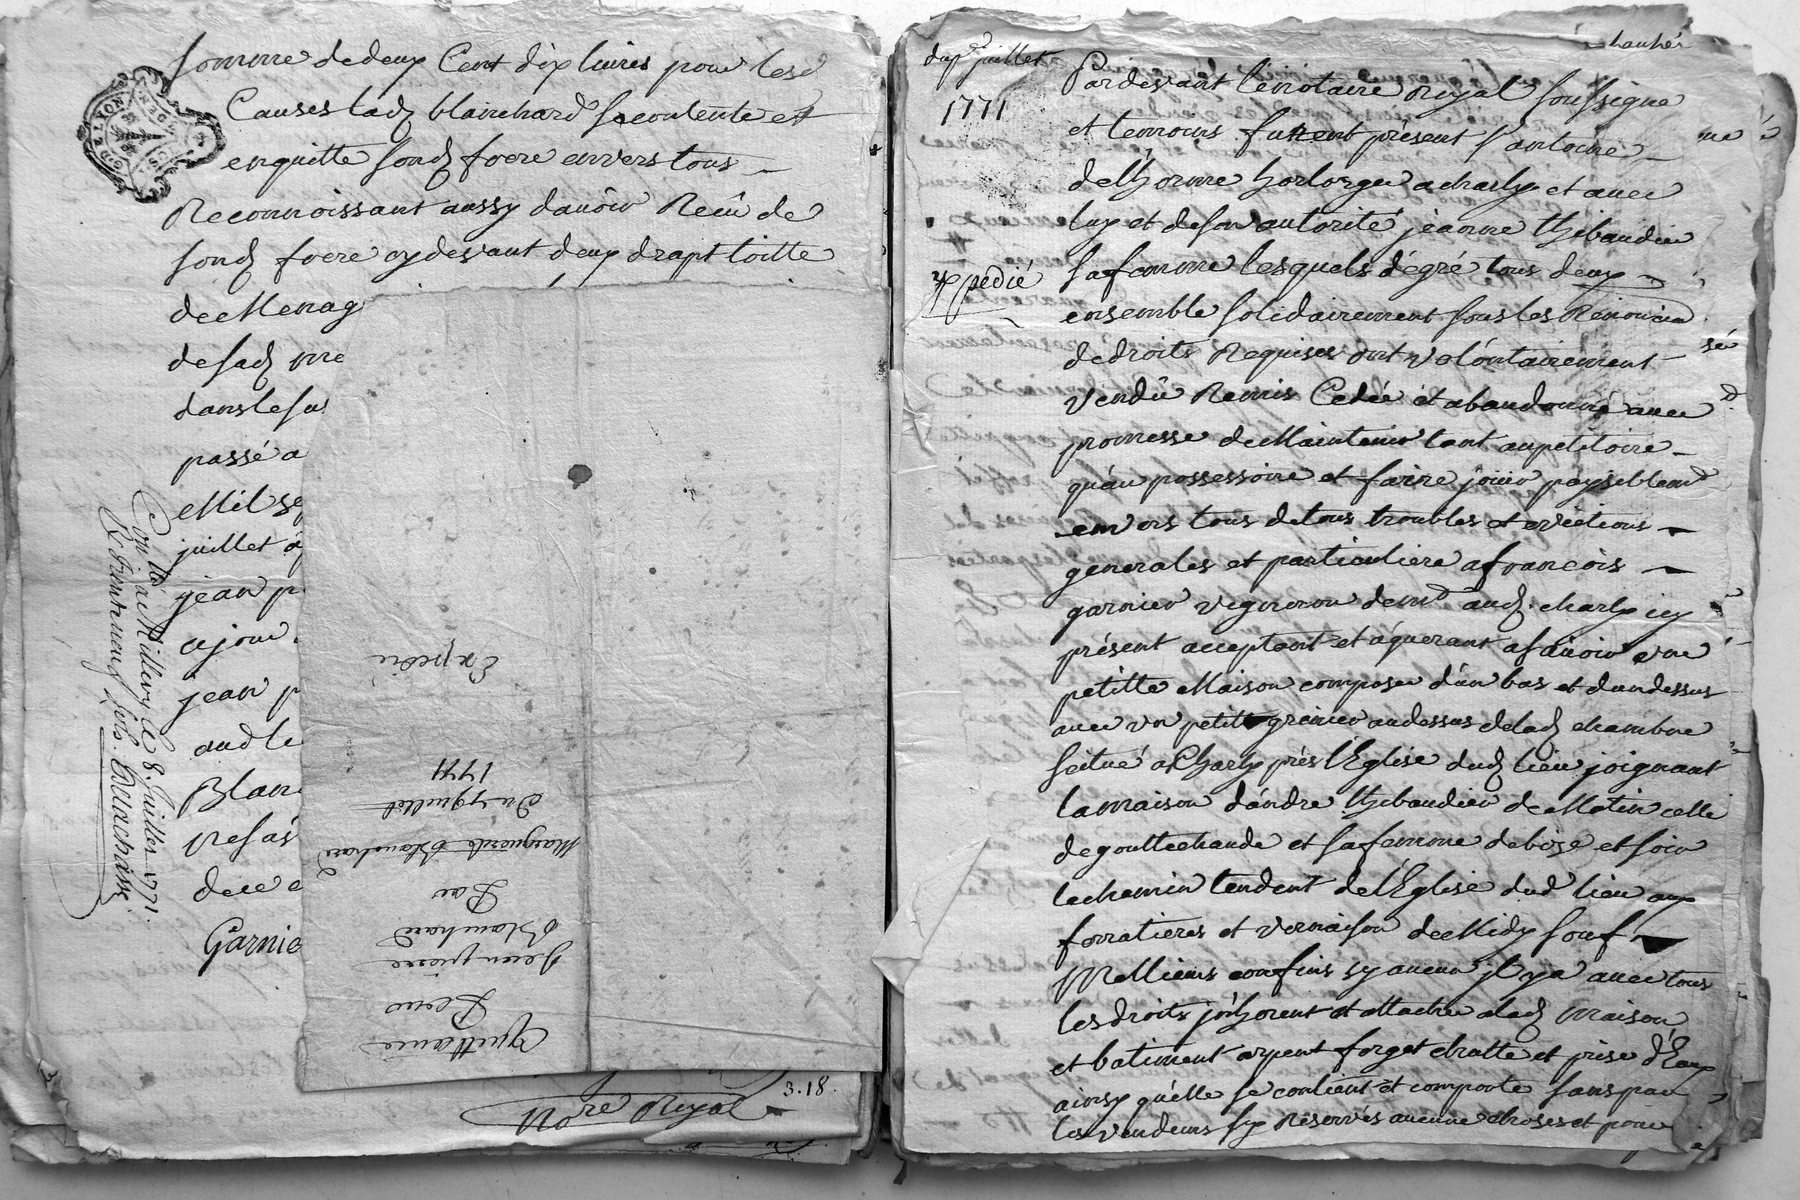 somme de deux Cent dix livres pour lesd
Causes lad blanchard se contente et
enquitte sond frere envers tous
Reconnoissant aussy davoir Recû de
sond frere cy devant deux drapt toille
de Menag
de sad me
dans le su
passé a
Mil se
juillet a
jean p
ajour
jean p
aud le
Blan
Refas
de ce e
Garnie
Con.lé a Millery Le 8. Juillet 1771.
Delachasse
G. DE LYON
GEN
Expedié
Du 7 juillet
1771
Marguerite Blanchard
Par
Blanchard
Jean pierre
Pour
Quittance
3.18.
No.re Royal
juillet
1771
Expedié
Pardevant le notaire Royal soussigné
et temoins furent présent S. antoine
delhorme horloger a charly et avec
luy et de son autorité jeanne thibaudier
sa femme lesquels dégré tous deux
ensemble solidairement sous les Renonciaon
de droits Requises ont volôntairement
vendû Remis Cedée et abandonné avec
promesse de Maintenir tant aupetitoire
quáu possessoire et faire jouir paysiblemt
envers tous de tous troubles et evictions
generales et particuliere a francois
garnier vigneron demt aud. charly icy
présent acceptant et áquerant asavoir une
petitte Maison composee dún bas et dun dessus
avec un petitt grenier audessus de lad chambre
scitué a Charly prés l'Eglise dud lieu joignant
la maison dándré thibaudier de Matin celle
de gouttechaude et sa femme de bize et soir
le chemin tendent de l'Eglise dud lieu aux
forratieres et vernaison de Midy sauf
Mellieurs confins sy aucun jl y a avec tous
les droits jnhorent et attachée alad maison
et batiment arpent forget chatte et prise d'Eaux
ainsy qu'elle se contient et comporte sans par
les vendeurs sy Réservés aucune choses et pour